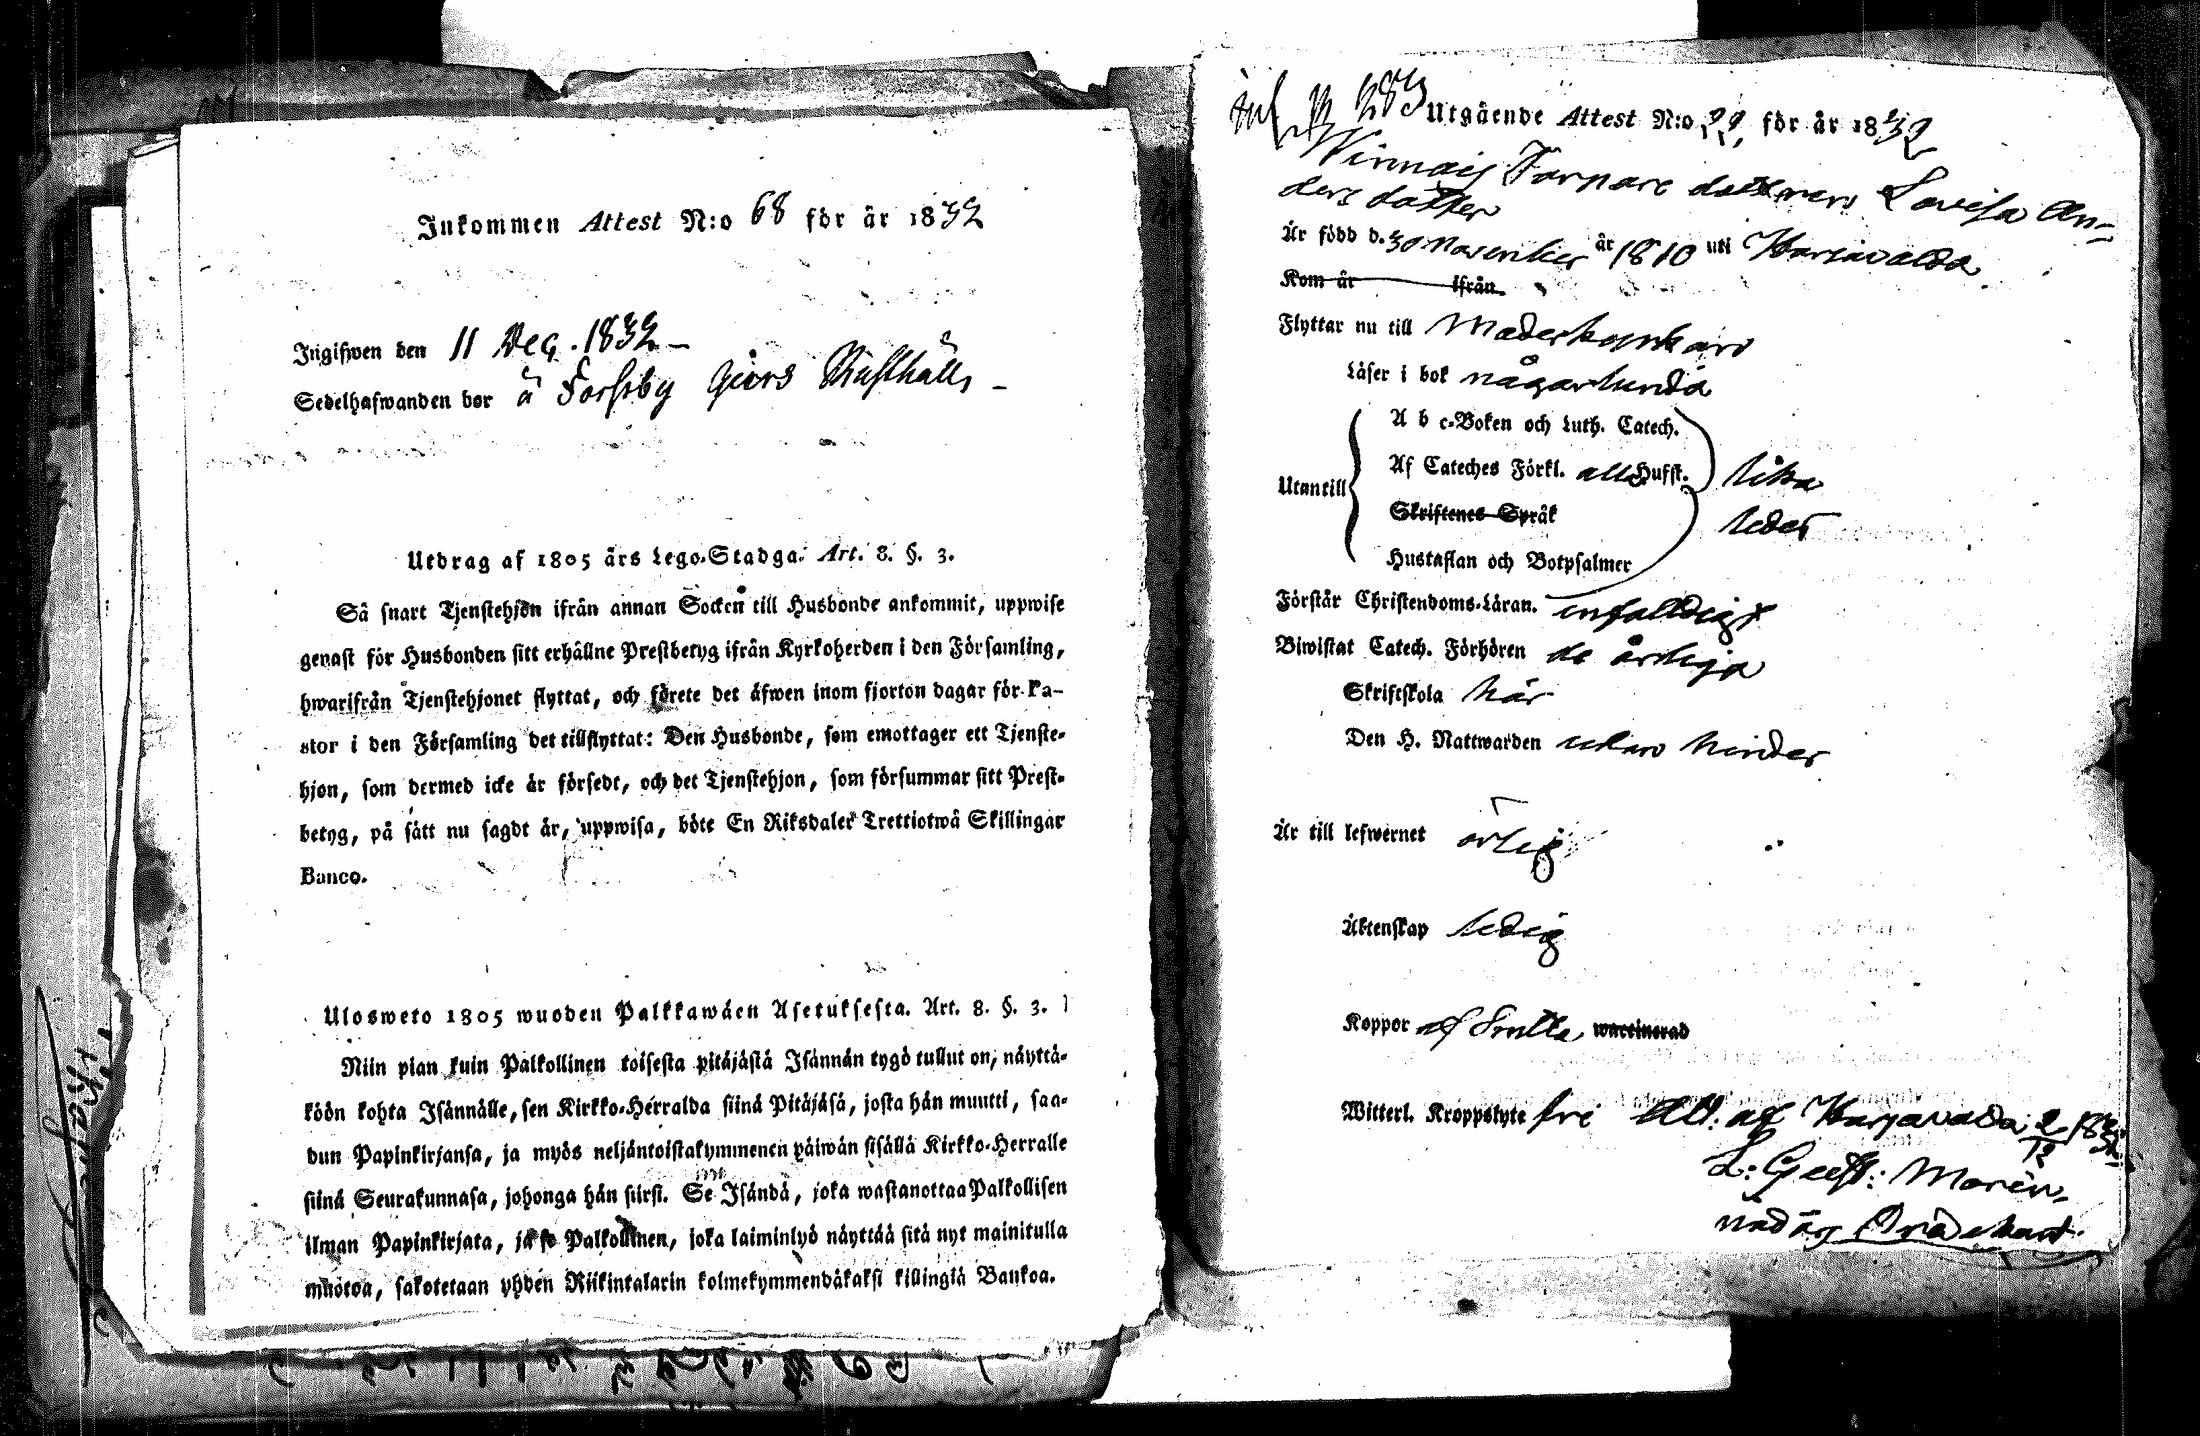 Inkommen Attest N:o 68 för år 1832
Ingifwen den 11 Dec. 1832 –
Sedelhafwanden bor å Forsby Giers Rusthåll –
Utdrag af 1805 års Lego-Stadga. Art. 8. §. 3.
Så snart Tjenstehjon ifrån annan Socken till Husbonde ankommit, uppwise
genast för Husbonden sitt erhållne Prestbetyg ifrån Kyrkoherden i den Församling,
hwarifrån Tjenstehjonet flyttat, och förete det äfwen inom fjorton dagar för Pa-
stor i den Församling det tillflyttat: Den Husbonde, som emottager ett Tjenste-
hjon, som dermed icke är försedt, och det Tjenstehjon, som försummar sitt Prest-
betyg, på sätt nu sagdt är, uppwisa, böte En Riksdaler Trettiotwå Skillingar
Banco.
Ulosweto 1805 wuoden Palkkawäen Asetuksesta. Art. 8. §. 3.
Niin pian kuin Palkollinen toisesta pitäjästä Isännän tygö tullut on, näyttä-
köön kohta Isännälle, sen Kirkko-Herralda siinä Pitäjäsä, josta hän muutti, saa-
dun Papinkirjansa, ja myös neljäntoistakymmenen päiwän sisällä Kirkko-Herralle
siinä Seurakunnasa, johonga hän siirst. Se Isändä, joka wastanottaa Palkollisen
ilman Papinkirjata, ja se Palkollinen, joka laiminlyö näyttää sitä nyt mainitulla
muotoa, sakotetaan yhden Riikintalarin kolmekymmendäkaksi killingiä Bankoa.
283 Utgående Attest N:o för år 1832
Torpare dottren Lovisa An=
ders dotter
Är född d. 30 November år 1810 uti Harjavalda
Kom år ifrån
Flyttar nu till
Läser i bok någorlunda
A b c-Boken och Luth. Catech.
Utantill Af Cateches Förkl. alla Hufst. lika
Skriftenes Språk ledes
Hustaflan och Botpsalmer
Förstår Christendoms-Läran. enfaldigt
Biwistat Catech. Förhören de årliga
Skriftskola här
Den H. Nattwarden utan hinder
Är till lefwernet ärlig
Äktenskap ledig
Koppor af waccinerad
Witterl. Kroppslyte fri Att: af Harjavalda 2/12 1832